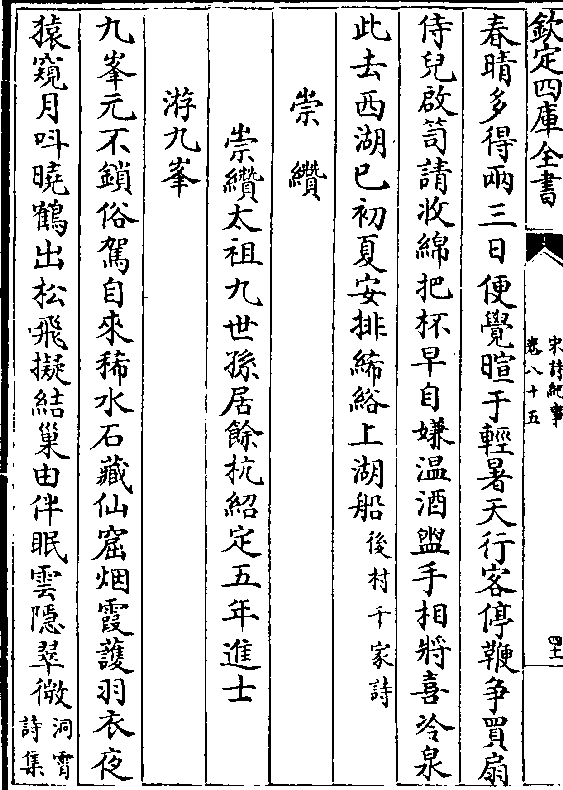 欽定四庫全書
宋詩紀事
卷八十五
四十一
春晴多得兩三日便覺暄于輕暑天行客停鞭争買扇
侍兒啟笥請收綿把杯早自嫌温酒盥手相將喜冷泉
此去西湖已初夏安排絺綌上湖船後村千家詩
崇纘
崇纘太祖九世孫居餘杭紹定五年進士
游九峯
九峯元不鎖俗駕自來稀水石藏仙窟烟霞䕶羽衣夜
猿窺月呌曉鶴出松飛擬結巢由伴眠雲隱翠微洞霄
詩集